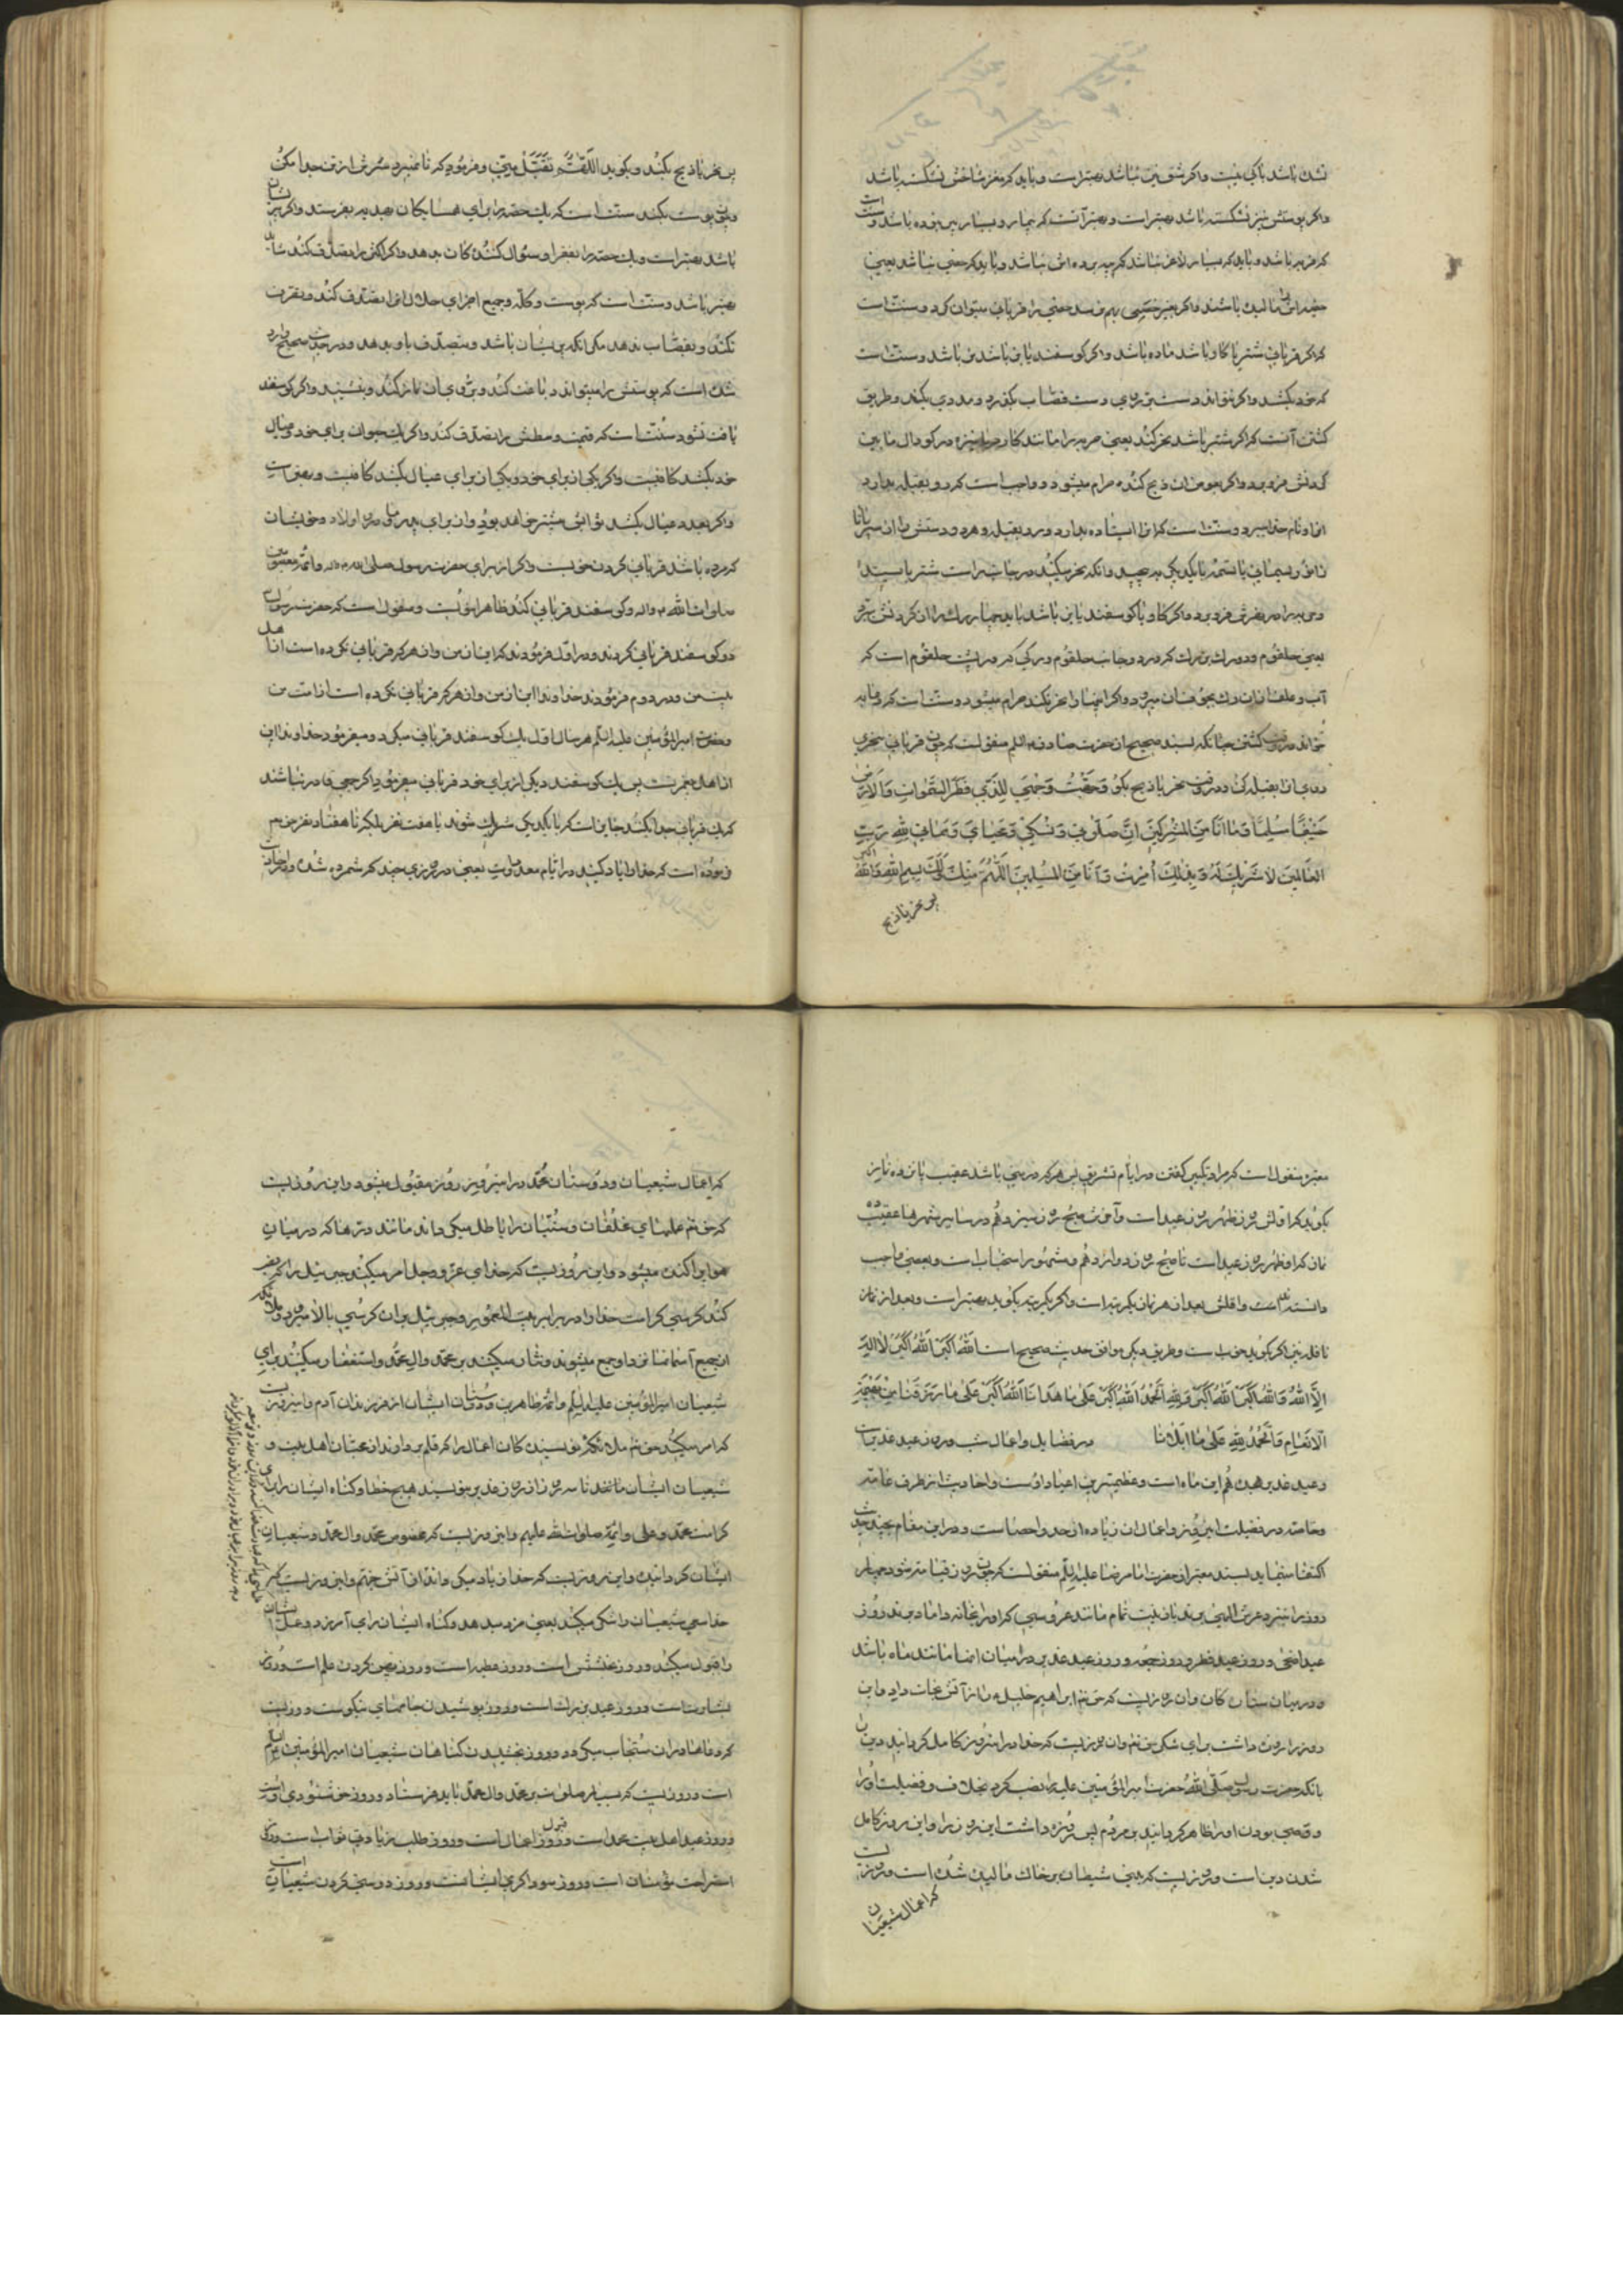 شده باشد باکی نیست و اگر شقّ نیز نباشد بهتر است و باید که مغز شاخش نشکسته باشد
و اگر پوستش نیز نشکسته باشد بهتر است و بهتر آنست که بیمار و بسیار پیر نبوده باشد و سنت است
که فربه باشد و باید که بسیار لاغر نباشد که پیه بر ده اش نباشد و باید که خصی نباشد یعنی
خصیه اش مالیده باشند و اگر بغیر خصی بهم نرسد خصی را قربانی میتوان کرد و سنت است
که اگر قربانی شتر یا گاو باشد ماده باشد و اگر گوسفند یا بز باشد نر باشد و سنت است
که خود بکشد و اگر نتواند دست بر روی دست قصّاب بگذارد و مددی بکند و طریق
کشتن آنست که اگر شتر باشد نحر کند یعنی حربه را مانند کارد یا نیزه در گودال مابین
گردنش فرو برد و اگر بعوض آن ذبح کند حرام میشود و واجب است که رو بقبله بدارد
او را و نام خدا ببرد و سنت است که او را ایستاده بدارد و رو بقبله و هر دو دستش را از سم تا
زانو بریسمانی با تسمه با یکدیگر بپیچد و آنکه نحر میکند در جانب راست شتر بایستد
و حربه را در نحرش فرو برد و اگر گاو یا گوسفند یا بز باشد باید چهار رگ را از گردنش ببرد
یعنی حلقوم و دو رگ بزرگ که در دو جانب حلقوم و رگی که در پشت حلقوم است که
آب و علف از آن رگ بجوف آن میرود و اگر اینها را نحر بکند حرام میشود و سنت است که دعا به
خواند در وقت کشتن چنانکه بسند صحیح از حضرت صادق علیه السلم منقولست که چون قربانی بخری
روی آن بقبله کن و در وقت نحر یا ذبح بگو وَجَّهْتُ وَجْهِيَ لِلَّذِي فَطَرَ السَّمَوَاتِ وَالْأَرْضَ
حَنِيفًا مُسْلِمًا وَمَا أَنَا مِنَ الْمُشْرِكِينَ إِنَّ صَلَوتِي وَنُسُكِي وَمَحْيَايَ وَمَمَاتِي لِلَّهِ رَبِّ
الْعَالَمِينَ لَا شَرِيكَ لَهُ وَبِذَلِكَ أُمِرْتُ وَأَنَا مِنَ الْمُسْلِمِينَ اَللَّهُمَّ مِنْكَ وَلَكَ بِسْمِ اللَّهِ وَاللَّهُ اکبر
پس نحر یا ذبح
پس نحر یا ذبح بکند و بگوید اَللّهُمَّ تَقَبَّلْ مِنّی و فرمود که تا نمیرد سرش از تن جدا مکن
و چون پوست بکند سنت است که یک حصه را برای همسایگان بهدیه بفرستد و اگر پریشان
باشد بهتر است و یک حصه را بفقرا و سؤال کنندگان بدهد و اگر اکثر را تصدق کند شاید
بهتر باشد و سنت است که پوست و کله و جمیع اجزای حلال او را تصدق کند و بفروش
نکند و بقصّاب ندهد مگر آنکه پریشان باشد و بتصدق باو بدهد و در حدیث صحیح وارد
شده است که پوستش را میتواند دباغت کند و بر روی آن نماز کند و بنشیند و اگر گوسفند
یافت نشود سنت است که قیمت وسطش را تصدق کند و اگر یک حیوان برای خود و عیال
خود بکشد کافیست و اگر یکی از برای خود و یکی از برای عیال بکشد کافیست و بهتر است
و اگر بعدد عیال بکشد ثوابش بیشتر خواهد بود و از برای پدر و مادر و اولاد و خویشان
که مرده باشند قربانی کردن خوبست و اگر از برای حضرت رسول صلی الله علیه و اله و ائمه معصومین
صلوات الله علیه و اله دو گوسفند قربانی کند ظاهرا خوبست و منقول است که حضرت رسول ص
دو گوسفند قربانی کردند و در اوّل فرمودند که این از من و از هر که قربانی نکرده است از اهل
بیت من و در دوم فرمودند خداوندا این از من و از هر که قربانی نکرده است از امت من
و حضرت امیر المؤمنین علیه السلم هر سال اول یک گوسفند قربانی میکرد و میفرمود خداوندا این
از اهل پیغمبر تست پس یک گوسفند دیگر از برای خود قربانی میفرمود و اگر جمعی قادر نباشند
که یک قربانی جدا بکشند جایز است که با یکدیگر شریک شوند تا هفت نفر بلکه تا هفتاد نفر حق تعالی
فرموده است که خدا را یاد کنید در ایّام معدودات یعنی در روزی چند که شمرده شده و در احادیث
معتبره منقول است که مراد تکبیر گفتن در ایام تشریق پس هر که در منی باشد عقیب پانزده نماز
بگوید که اولش بعد از ظهر روز عید است و آخرش صبح روز سیزدهم و در سایر شهرها عقیب ده
نماز که از ظهر روز عید است تا صبح روز دوازدهم و مشهور استحباب است و بعضی واجب
دانسته اند و اقلش بعد از هر نماز یکمرتبه است و اگر مکرر بگوید بهتر است و بعد از نماز
نافله نیز اگر بگوید خوبست و طریق دیگر موافق حدیث صحیح است اَللَّهُ أَكْبَرُ اَللَّهُ أَكْبَرُ لَا إِلَهَ
إِلَّا اللَّهُ وَاللَّهُ أَكْبَرُ اَللَّهُ أَكْبَرُ وَلِلَّهِ الْحَمْدُ اَللَّهُ أَكْبَرُ عَلَى مَا هَدَانَا اَللَّهُ أَكْبَرُ عَلَى مَا رَزَقَنَا مِنْ بَهِيمَةِ
الْأَنْعَامِ وَالْحَمْدُ لِلَّهِ عَلَى مَا أَبْلَانَا در فضایل و اعمال شب و روز عید غدیر است
و عید غدیر هجدهم این ماه است و عظیمترین اعیاد اوست و احادیث از طرف عامّه
و خاصّه در فضیلت این روز و اعمال آن زیاده از حد و احصاست و در این مقام بچند حدیث
اکتفا مینماید بسند معتبر از حضرت امام رضا علیه السلم منقولست که چون روز قیامت شود چهار
روز را بنزد عرش الهی برند با زینت تمام مانند عروسی که او را بخانه داماد برند روز
عید اضحی و روز عید فطر و روز جمعه و روز عید غدیر و در میان اینها مانند ماه باشد
در میان ستارگان و آن روزیست که حق تعالی ابراهیم خلیل را از آتش نجات داد و این
روز را روزه داشت برای شکر حق تعالی و آن روزیست که خدا در این روز کامل گردانید دین را
بآنکه حضرت رسول صلّی الله حضرت امیر المؤمنین علیه را نصب کرد بخلافت و فضیلت او را
و وصی بودن او را ظاهر گردانید بر مردم پس روزه داشت این روز را و این روز کامل
شدن دین است و روزیست که بینی شیطان بر خاک مالیده شده است و روزیست
که اعمال شیعیان
که اعمال شیعیان و دوستان محمد در این روز مقبول میشود و این روزیست
که حق تعالی عملهای مخالفان و سنّیان را باطل میگرداند مانند ذرّها که در میان
هوا پراکنده میشود و این روزیست که خدای عزّ و جل امر میکند جبرئیل را که نصب
کند کرسی کرامت خدا را در برابر بیت المعمور و جبرئیل بر آن کرسی بالا میرود و ملائکه
از جمیع آسمانها نزد او جمع میشوند و ثنا میکنند بر محمّد و ال محمّد و استغفار میکنند برای
شیعیان امیر المؤمنین علیه السلم و ائمه طاهرین و دوستان ایشان از فرزندان آدم و این روزیست
که امر میکند حق تعالی ملائکه نویسندگان اعمال را که قلم بردارند از محبّان اهل بیت و
شیعیان ایشان تا سه روز از روز غدیر و ننویسند هیچ خطا و گناه ایشان را برای
کرامت محمّد و علی و ائمّه صلوات الله علیهم و این روزیست که مخصوص محمّد و ال محمّد و شیعیان
ایشان گردانیده و این روزیست که
خدا سعی شیعیان را شکر میکند یعنی مزد میدهد و گناه ایشان را می آمرزد و عمل ایشان
را قبول میکند و روز است و روز عطر است و روز علم است و روز
بشارتست و روز عید بزرگ است و روز پوشیدن جامهای نیکوست و روزیست
که دعاها در آن مستجاب میگردد و روز بخشیدن گناهان شیعیان امیر المؤمنین علیه السلم
است و روزیست که بسیار صلوات بر محمّد و ال محمّد باید فرستاد و روز خوشنودی است
و روز عید اهل بیت محمد است و روز قبول اعمال است و روز طلب زیادتی ثواب است و روز
استراحت مؤمنان است و روز سوداگری ایشانست و روز دوستی کردن شیعیان است